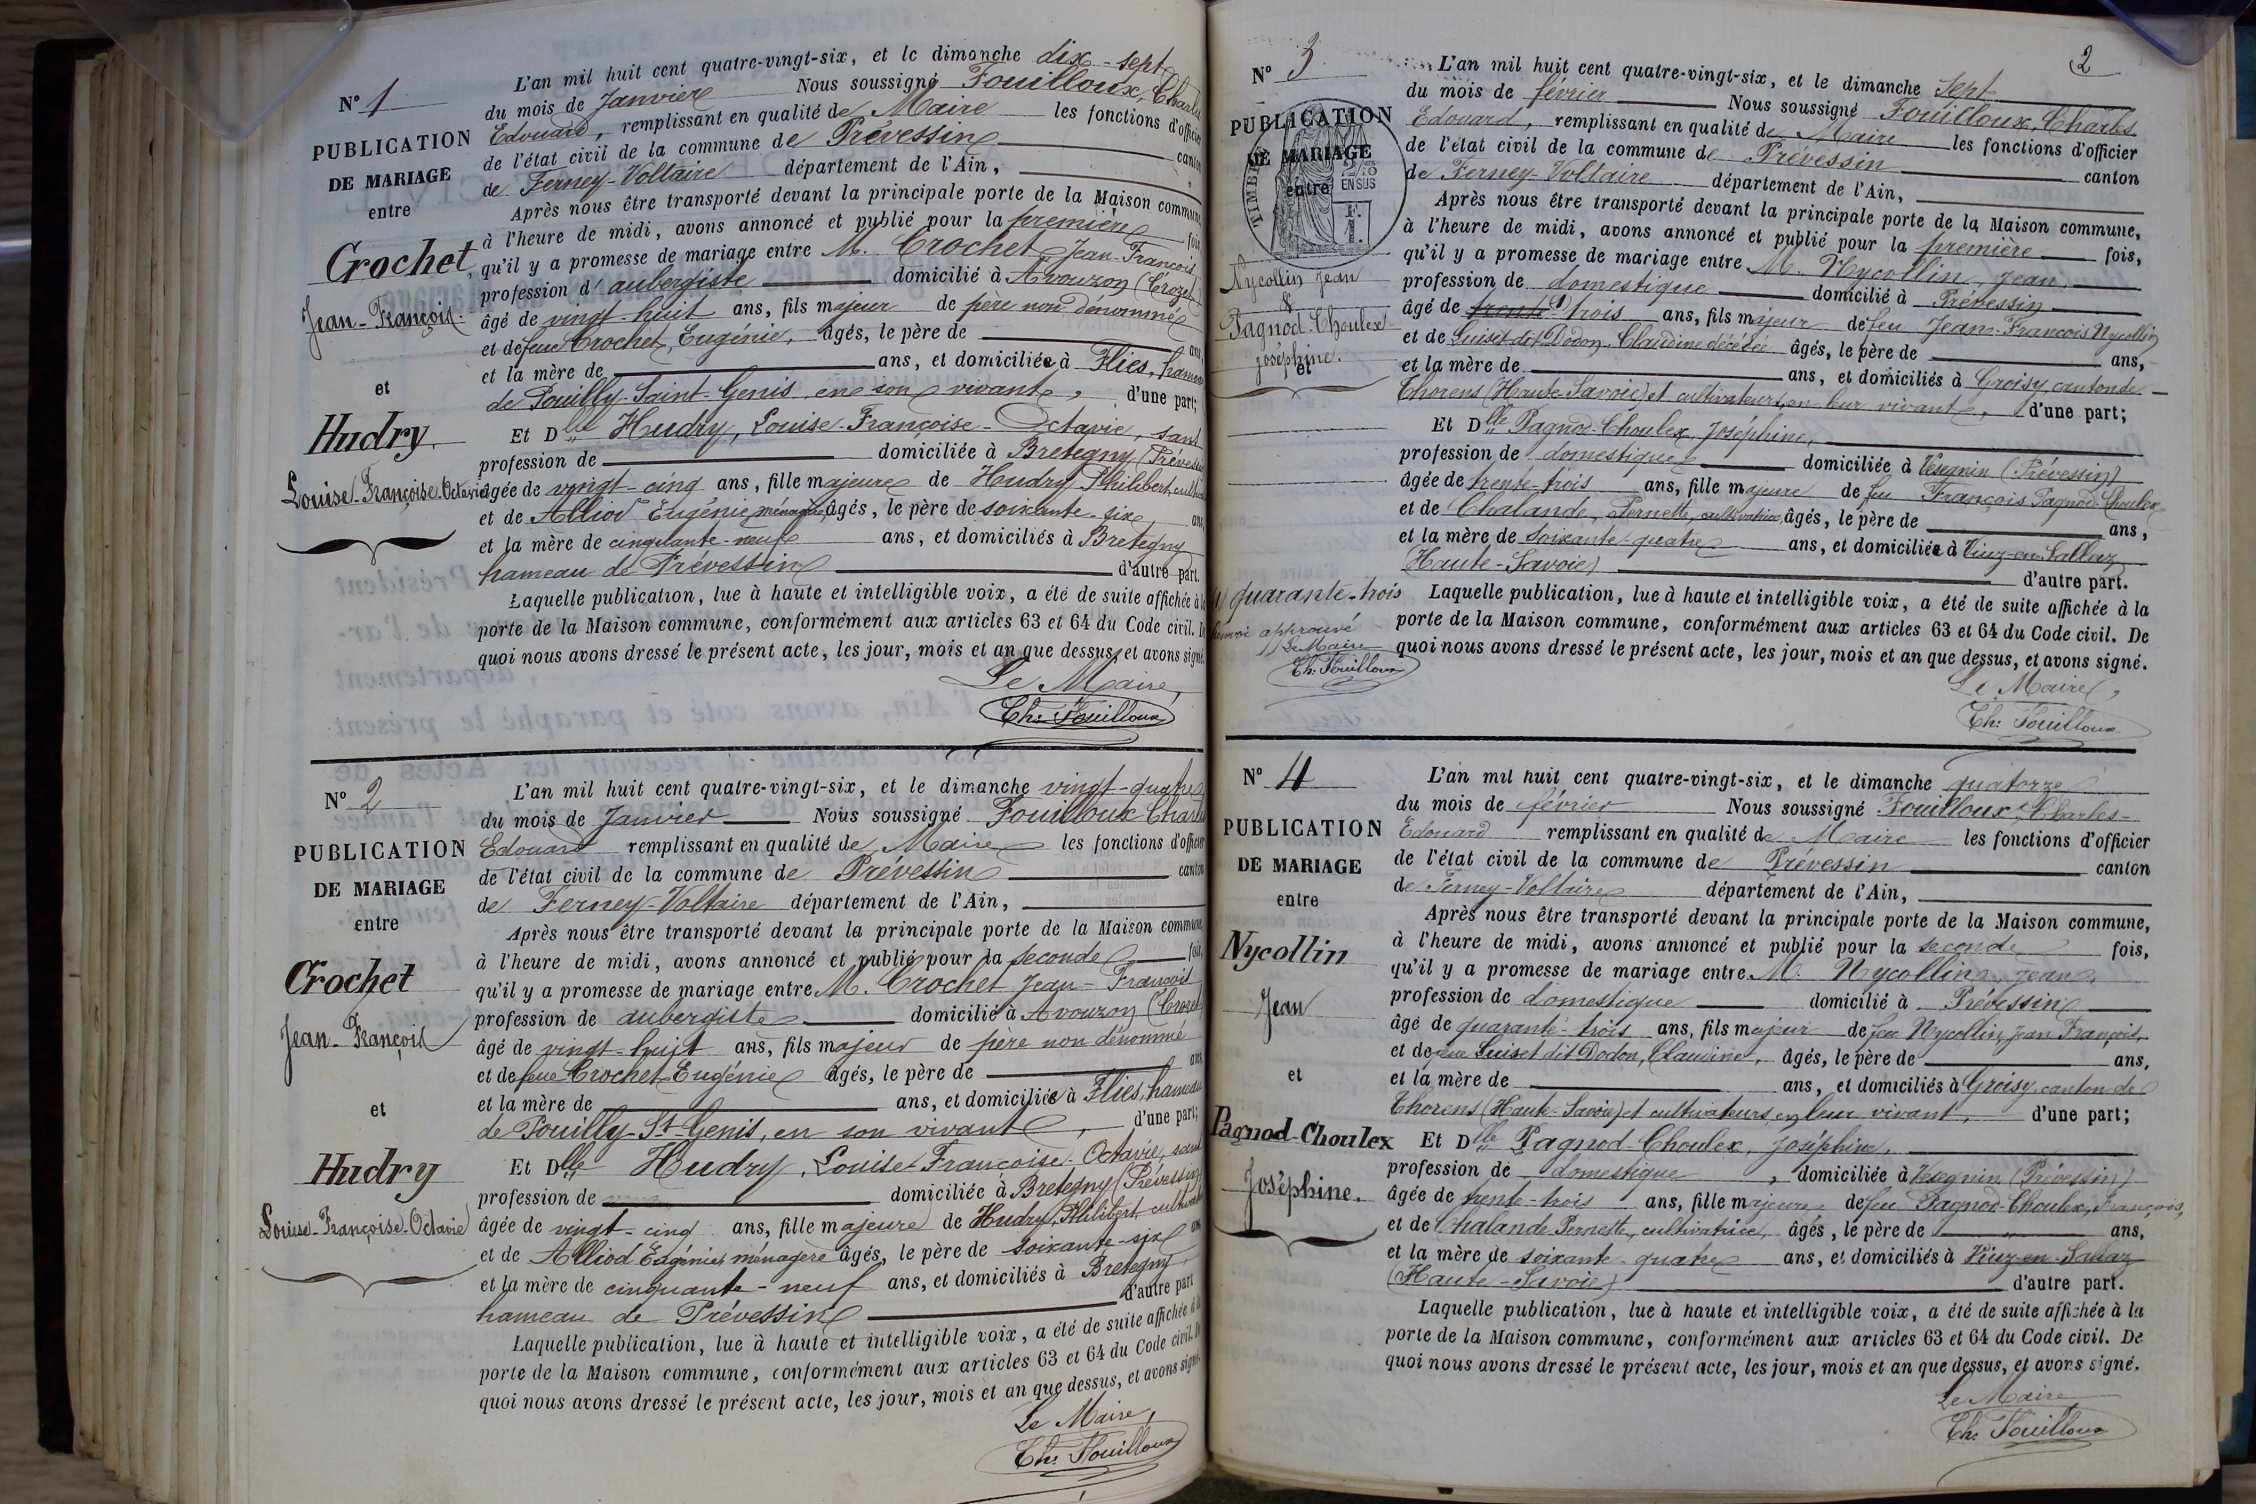 N° 1
PUBLICATION
DE MARIAGE
entre
Crochet,
Jean-François
et
Hudry
Louise-Françoise-Octavie
L'an mil huit cent quatre-vingt-six, et le dimanche dix-sept
du mois de Janvier Nous soussigné Fouilloux, Charles
Edouard, remplissant en qualité de Maire les fonctions d'officier
de l'état civil de la commune de Prévessin canton
de Ferney-Voltaire département de l'Ain,
Après nous être transporté devant la principale porte de la Maison commune,
à l'heure de midi, avons annoncé et publié pour la première fois,
qu'il y a promesse de mariage entre M. Crochet Jean-François
profession d'aubergiste domicilié à Avouzon (Crozet)
âgé de vingt-huit ans, fils majeur de père non dénommé
et de feue Crochet, Eugénie, âgés, le père de ans,
et la mère de ans, et domiciliée à Flies, hameau
de Pouilly-Saint-Genis en son vivant, d'une part;
Et Dlle Hudry, Louise-Françoise-Octavie, sans
profession de domiciliée à Bretegny (Prévessin)
âgée de vingt-cinq ans, fille majeure de Hudry Philibert, cultivateur
et de Alliod Eugénie ménagère, âgés, le père de soixante-six ans,
et la mère de cinquante-neuf ans, et domiciliés à Bretegny
hameau de Prévessin d'autre part.
Laquelle publication, lue à haute et intelligible voix, a été de suite affichée à la
porte de la Maison commune, conformément aux articles 63 et 64 du Code civil. De
quoi nous avons dressé le présent acte, les jour, mois et an que dessus, et avons signé.
Le Maire,
Ch. Fouilloux
N° 2
PUBLICATION
DE MARIAGE
entre
Crochet
Jean-François
et
Hudry
Louise-Françoise-Octavie
L'an mil huit cent quatre-vingt-six, et le dimanche vingt-quatre
du mois de Janvier Nous soussigné Fouilloux Charles
Edouard remplissant en qualité de Maire les fonctions d'officier
de l'état civil de la commune de Prévessin canton
de Ferney-Voltaire département de l'Ain,
Après nous être transporté devant la principale porte de la Maison commune,
à l'heure de midi, avons annoncé et publié pour la seconde fois,
qu'il y a promesse de mariage entre M. Crochet Jean-François
profession de aubergiste domicilié à Avouzon (Crozet)
âgé de vingt-huit ans, fils majeur de père non dénommé
et de feue Crochet Eugénie âgés, le père de ans,
et la mère de ans, et domiciliée à Flies, hameau
de Pouilly-St-Genis, en son vivant, d'une part;
Et Dlle Hudry, Louise Françoise-Octavie, sans
profession de domiciliée à Bretegny (Prévessin)
âgée de vingt-cinq ans, fille majeure de Hudry, Philibert, cultivateur
et de Alliod Eugénie, ménagère âgés, le père de soixante-six ans
et la mère de cinquante-neuf ans, et domiciliés à Bretegny,
hameau de Prévessin d'autre part
Laquelle publication, lue à haute et intelligible voix, a été de suite affichée à la
porte de la Maison commune, conformément aux articles 63 et 64 du Code civil. De
quoi nous avons dressé le présent acte, les jour, mois et an que dessus, et avons signé.
Le Maire,
Ch. Fouilloux
2
N° 3
PUBLICATION
DE MARIAGE
entre
TIMBRE
2/10
EN SUS
F.
1.
Nycollin Jean
&
Pagnod-Choulex
Joséphine.
et
(1) quarante-trois
Renvoi approuvé
Le Maire
Ch. Fouilloux
L'an mil huit cent quatre-vingt-six, et le dimanche sept
du mois de février Nous soussigné Fouilloux, Charles
Edouard, remplissant en qualité de Maire les fonctions d'officier
de l'état civil de la commune de Prévessin canton
de Ferney-Voltaire département de l'Ain,
Après nous être transporté devant la principale porte de la Maison commune,
à l'heure de midi, avons annoncé et publié pour la première fois,
qu'il y a promesse de mariage entre M. Nycollin, Jean,
profession de domestique domicilié à Prévessin
âgé de trente (1) trois ans, fils majeur de feu Jean-François Nycollin
et de Guiset dit Dodon, Claudine décédée âgés, le père de ans,
et la mère de ans, et domiciliés à Groisy canton de
Thorens (Haute-Savoie) et cultivateurs en leur vivant, d'une part;
Et Dlle Pagnod-Choulex, Joséphine,
profession de domestique domiciliée à Vésegnin (Prévessin)
âgée de trente-trois ans, fille majeure de feu François Pagnod-Choulex
et de Chalande, Pernette, cultivatrice, âgés, le père de ans,
et la mère de soixante-quatre ans, et domiciliée à Viuz-en-Sallaz
(Haute-Savoie) d'autre part.
Laquelle publication, lue à haute et intelligible voix, a été de suite affichée à la
porte de la Maison commune, conformément aux articles 63 et 64 du Code civil. De
quoi nous avons dressé le présent acte, les jour, mois et an que dessus, et avons signé.
Le Maire,
Ch. Fouilloux
N° 4
PUBLICATION
DE MARIAGE
entre
Nycollin
Jean
et
Pagnod-Choulex
Joséphine.
L'an mil huit cent quatre-vingt-six, et le dimanche quatorze
du mois de février Nous soussigné Fouilloux, Charles-
Edouard remplissant en qualité de Maire les fonctions d'officier
de l'état civil de la commune de Prévessin canton
de Ferney-Voltaire département de l'Ain,
Après nous être transporté devant la principale porte de la Maison commune,
à l'heure de midi, avons annoncé et publié pour la seconde fois,
qu'il y a promesse de mariage entre M. Nycollin Jean,
profession de domestique domicilié à Prévessin
âgé de quarante-trois ans, fils majeur de feu Nycollin, Jean François,
et de feue Guiset dit Dodon, Claudine, âgés, le père de ans,
et la mère de ans, et domiciliés à Groisy canton de
Thorens (Haute-Savoie) et cultivateurs en leur vivant, d'une part;
Et Dlle Pagnod-Choulex, Joséphine,
profession de domestique, domiciliée à Vésegnin (Prévessin)
âgée de trente-trois ans, fille majeure de feu Pagnod-Choulex, François,
et de Chalande Pernette, cultivatrice, âgés, le père de ans,
et la mère de soixante-quatre ans, et domiciliés à Viuz-en-Sallaz
(Haute-Savoie) d'autre part.
Laquelle publication, lue à haute et intelligible voix, a été de suite affichée à la
porte de la Maison commune, conformément aux articles 63 et 64 du Code civil. De
quoi nous avons dressé le présent acte, les jour, mois et an que dessus, et avons signé.
Le Maire
Ch. Fouilloux